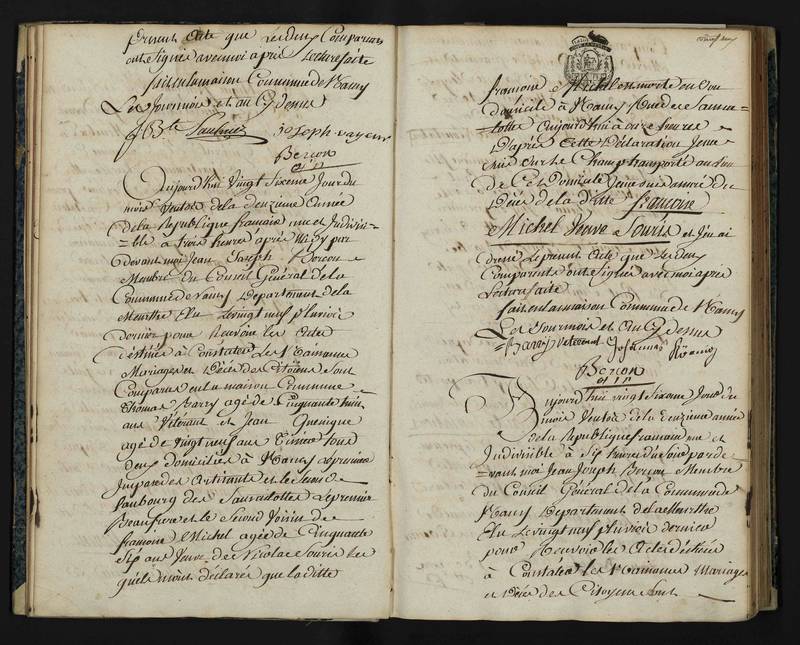 présent Acte que les deux Comparans
ont signé avec moi après Lecture faite
fait en la maison Commune de Nancy
Les jour mois et an Cy dessus
joseph
Berçon
Aujourd'hui Vingt Sixeme Jour du
mois Ventose de la deuzieme année
de la Republique francaise une et Indivisi-
=ble à trois heures après Midy par
devant moi Jean Joseph Berçon
Membre du Conseil Général de la
Commune de Nancy Departement de la
Meurthe Elu Le vingt neuf pluviose
dernier pour Recevoir les Actes
destinés à Constater Les Naissances
Mariages et Décès des Citoiens Sont
Comparus en la maison Commune
Thomas Barry agé de Cinquante huit
ans Vétérant et Jean
agé de vingt neuf ans tous
deux domiciliés à Nancy Le premier
et le second
faubourg des Sansculottes Le premier
Beaufrere et le Second Voisin de
francoise Michel agée de Cinquante
Six ans Veuve de Nicolas Souris les
quels m'ont déclaré que la ditte
francoise Michel est morte en son
domicile à Nancy Rue des Sanscu=
=lottes Aujourd'hui à onze heures
D'après Cette Déclaration Je me
suis sur le Champ transporté au lieu
de Ce Domicile Je me suis assuré du
Décès de la ditte francoise
Michel Veuve Souris et J'en ai
dressé Le présent Acte que les deux
Comparants ont signé avec moi après
Lecture faite
fait en la maison Commune de Nancy
Les Jour mois et an Cy dessus
Barry veteran Johannes
Berçon
Aujourd'hui vingt Sixeme Jour du
mois Ventose de la deuzieme année
de la Republique francaise une et
Indivisible à Six heures du Soir par de
=vant moi Jean Joseph Berçon Membre
du Conseil Général de la Commune de
Nancy Departement de la Meurthe
Elu Le vingt neuf pluviose dernier
pour Recevoir les Actes destinés
à Constater les Naissances Mariages
et Décès des Citoyens Sont